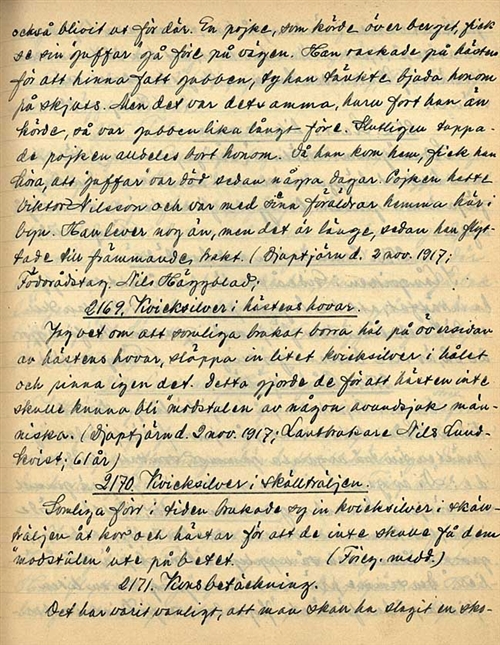 också blivit ut för där. En pojke, som körde över berget, fick
se sin "guffar" gå före på vägen. Han raskade på hästen
för att hinna fatt gubben, ty han tänkte bjuda honom
på skjuts. Men det var detsamma, huru fort han än
körde, så var gubben lika långt före. Slutligen tappa-
de pojken alldeles bort honom. Då han kom hem, fick han
höra, att "guffar" var död sedan några dagar. Pojken hette
Viktor Nilsson och var med sina föräldrar hemma här i
byn. Han lever nog än, men det är länge, sedan han flyt-
tade till främmande trakt. (Djuptjärn d. 2 nov. 1917;
Födorådstag. Nils Häggblad;
2169. Kvicksilver i hästens hovar.
Jag vet om att somliga brukat borra hål på översidan
av hästens hovar, släppa in litet kvicksilver i hålet
och pinna igen det. Detta gjorde de för att hästen inte
skulle kunna bli "modstulen" av någon avundsjuk män-
niska. (Djuptjärn d. 2 nov. 1917; Lantbrukare Nils Lund-
kvist; 61 år)
2170. Kvicksilver i skällträljen.
Somliga förr i tiden brukade sy in kvicksilver i skäll-
träljen åt kor och hästar för att de inte skulle få dem
"modstulen" ute på betet. (Föreg. medd.)
2171. Konsbetäckning.
Det har varit vanligt, att man skall ha slagit en sko-